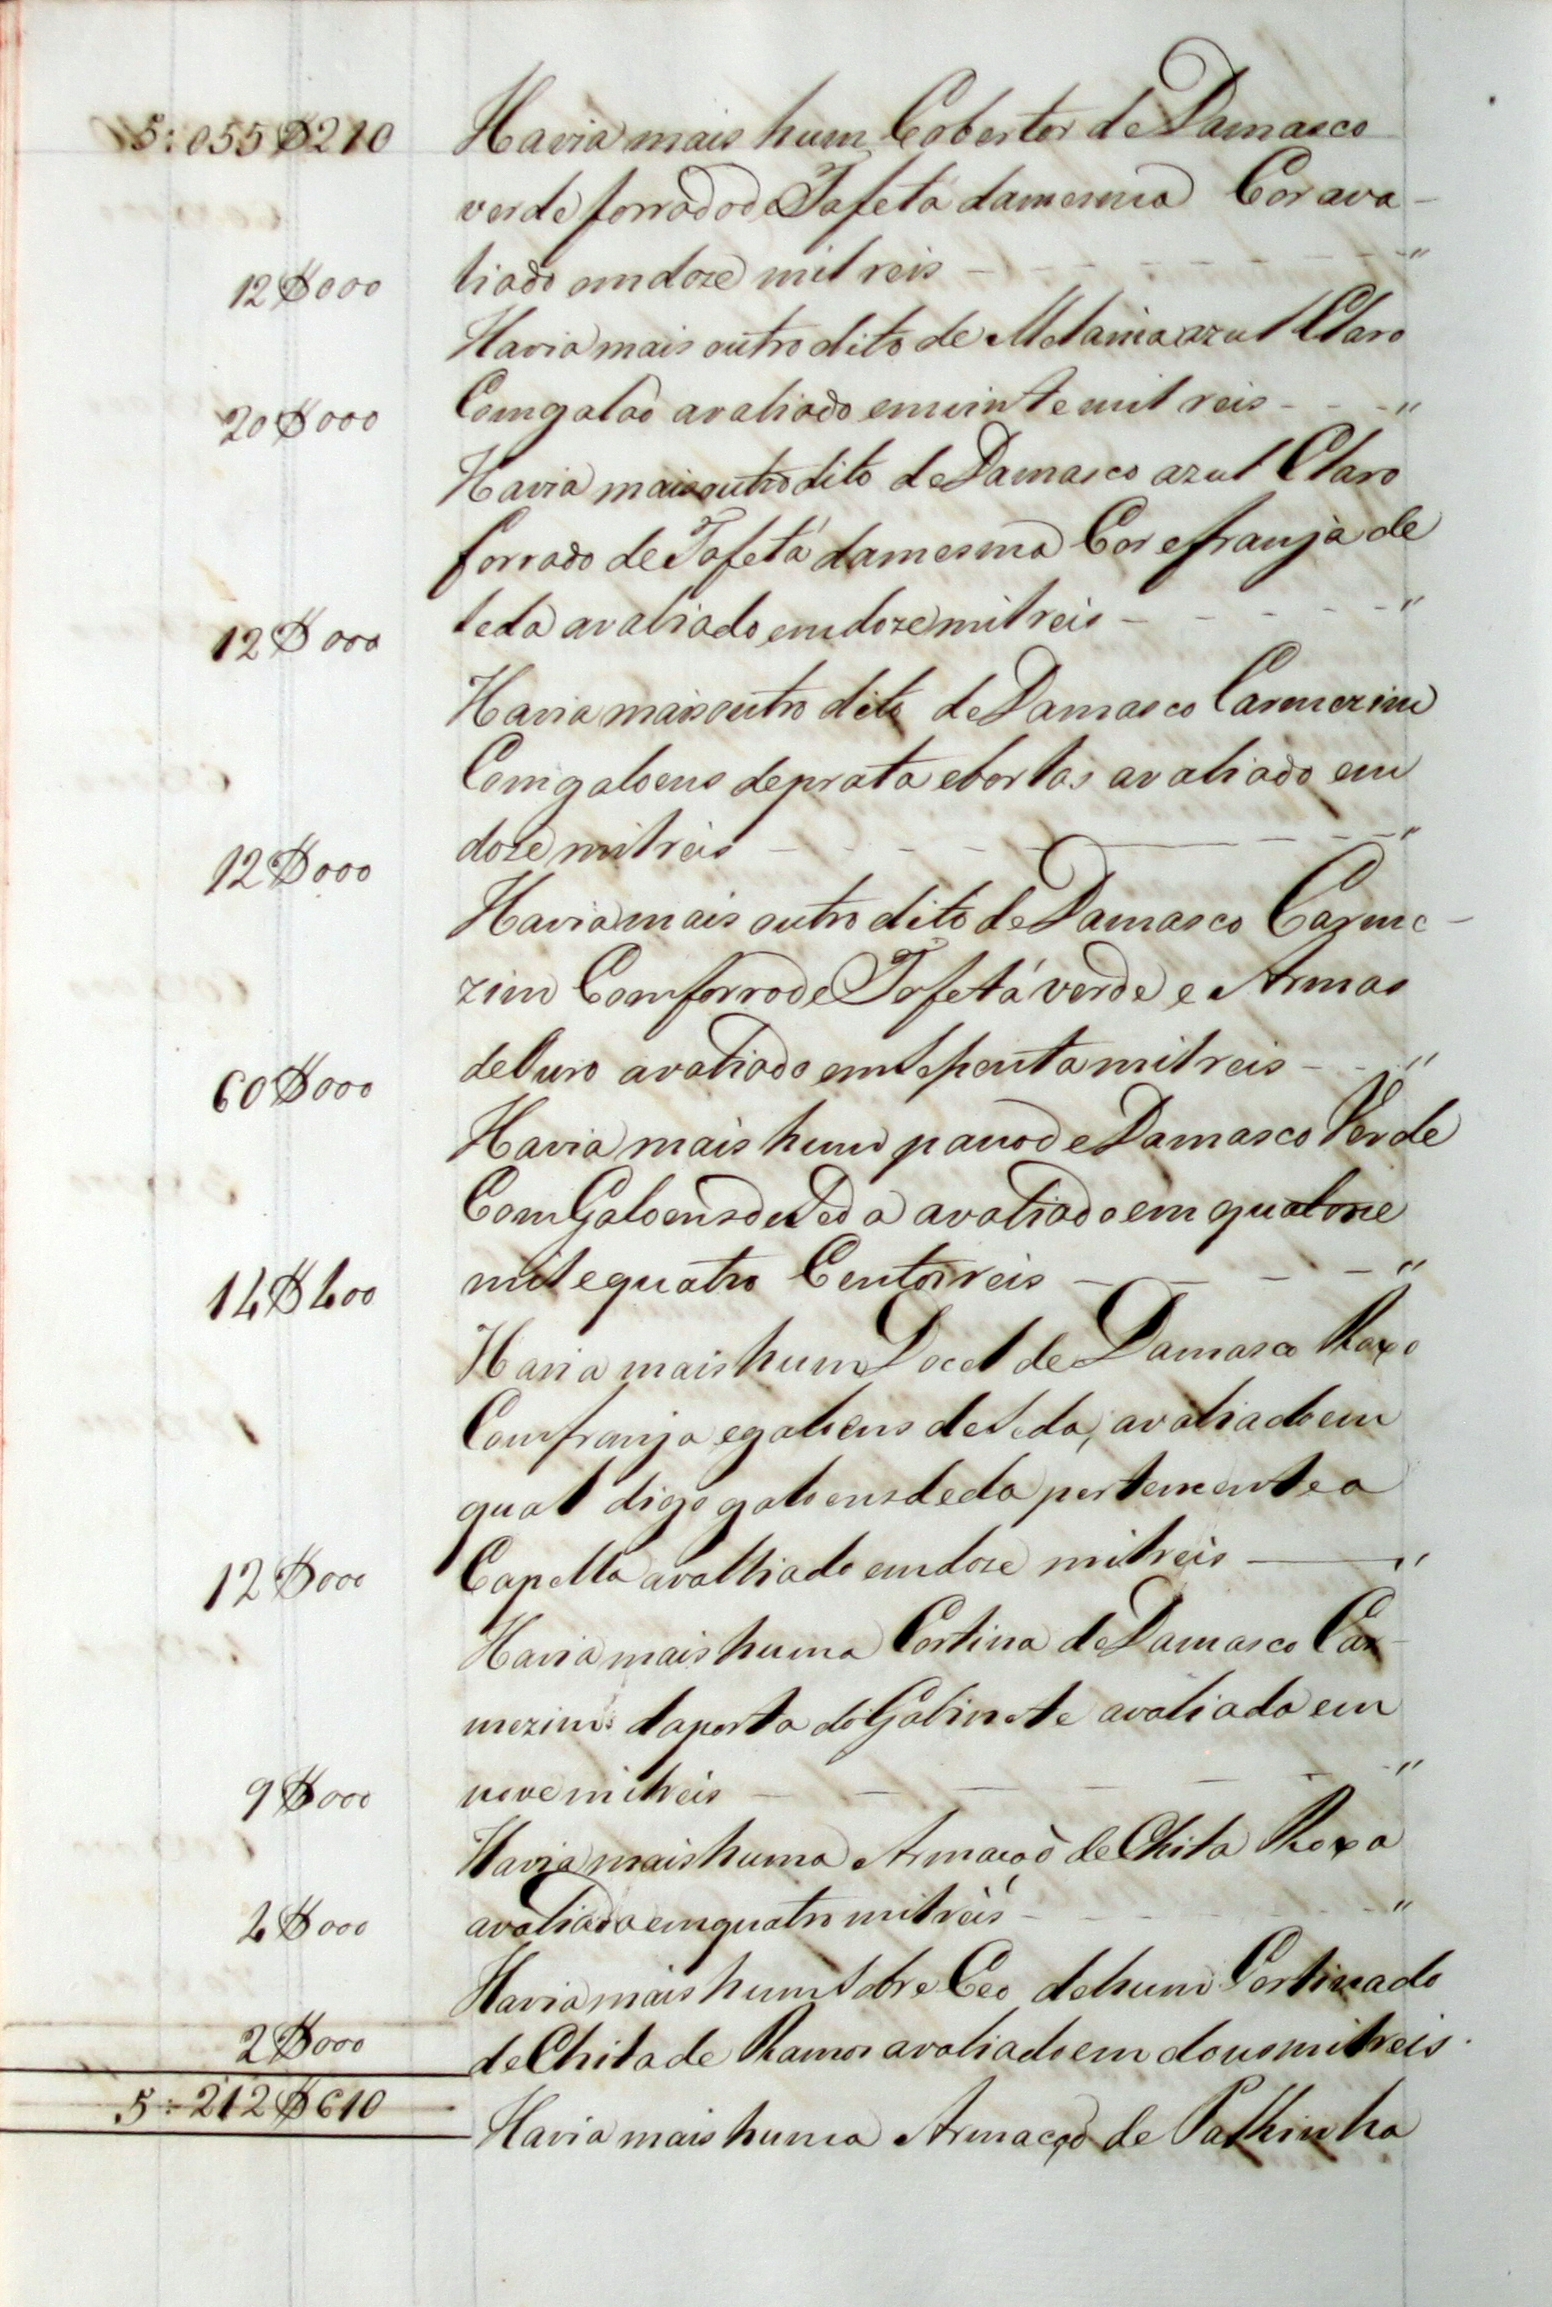 5:055$210 Havia mais hum Cobertor de Damasco
verde forrado de Tafetá da mesma Cor ava-
12$000 liado em doze mil reis - - - - - - - - "
Havia mais outro dito de Melania azul Claro
20$000 Com galaõ avaliado em vinte mil reis - - - "
Havia mais outro dito de Damasco azul Claro
forrado de Tafetá da mesma Cor e franja de
12$000 seda avaliado em doze mil reis - - - - - "
Havia mais outro dito de Damasco Carmezim
Com galoens de prata e borlas avaliado em
12$000 doze mil reis - - - - - - - - "
Havia mais outro dito de Damasco Carme-
zim Com forro de Tafetá verde e Armas
60$000 de Ouro avaliado em Sessenta mil reis - - "
Havia mais hum pano de Damasco Verde
Com Galoens de Seda avaliado em quatorze
14$400 mil e quatro Centos reis - - - - "
Havia mais hum Docel de Damasco Roxo
Com franja e galoens de Seda, avaliado em
qual digo galoens deda pertencente a
12$000 Capella avalliado em doze mil reis - "
Havia mais huma Cortina de Damasco Car-
mezim da porta do Gabinete avaliada em
9$000 nove mil reis - - - - - - "
Havia mais huma Armaçaõ de Chita Roxa
4$000 avaliada em quatro mil reis - - - - "
Havia mais hum Sobre Ceo de hum Cortinado
2$000 de Chita de Ramos avaliado em dous mil reis.
5:212$610 Havia mais huma Armaçaõ de Palhinha